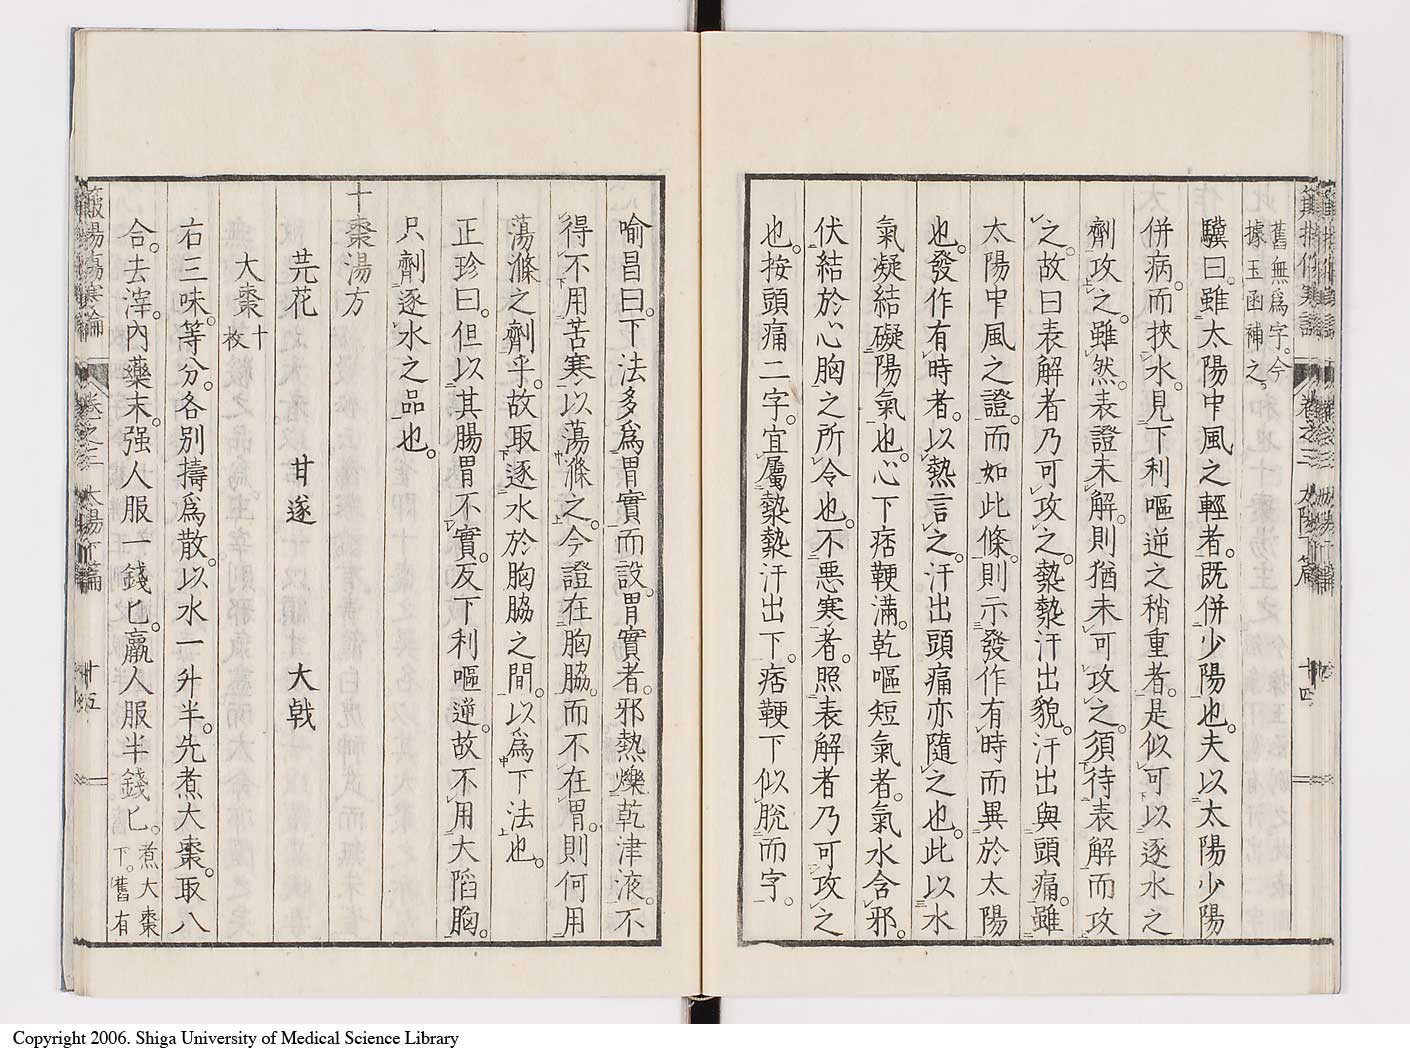 舊無爲字。今
據玉函補之。
驥曰。雖太陽中風之輕者。既併少陽也。夫以太陽少陽
併病。而挾水。見下利嘔逆之稍重者。是似可以逐水之
劑攻之。雖然。表證未解。則猶未可攻之。須待表解而攻
之。故曰表解者乃可攻之。漐漐汗出貌。汗出與頭痛。雖
太陽中風之證。而如此條。則示發作有時而異於太陽
也。發作有時者。以熱言之。汗出頭痛亦隨之也。此以水
氣凝結礙陽氣也。心下痞鞕滿。乾嘔短氣者。氣水含邪。
伏結於心胸之所令也。不惡寒者。照表解者乃可攻之
也。按頭痛二字。宜屬漐漐汗出下。痞鞕下似脫而字。
卷之三 太陽下篇 十四
喻昌曰。下法多爲胃實而設。胃實者。邪熱爍乾津液。不
得不用苦寒以蕩滌之。今證在胸脇。而不在胃。則何用
蕩滌之劑乎。故取逐水於胸脇之間。以爲下法也。
正珍曰。但以其腸胃不實。反下利嘔逆。故不用大陷胸。
只劑逐水之品也。
十棗湯方
芫花 甘遂 大戟
大棗十枚
右三味。等分。各別擣爲散。以水一升半。先煮大棗。取八
合。去滓。內藥末。强人服一錢匕。羸人服半錢匕。煮大棗
下。舊有
傷寒論 卷之三 太陽下篇 十五
Copyright 2006. Shiga University of Medical Science Library